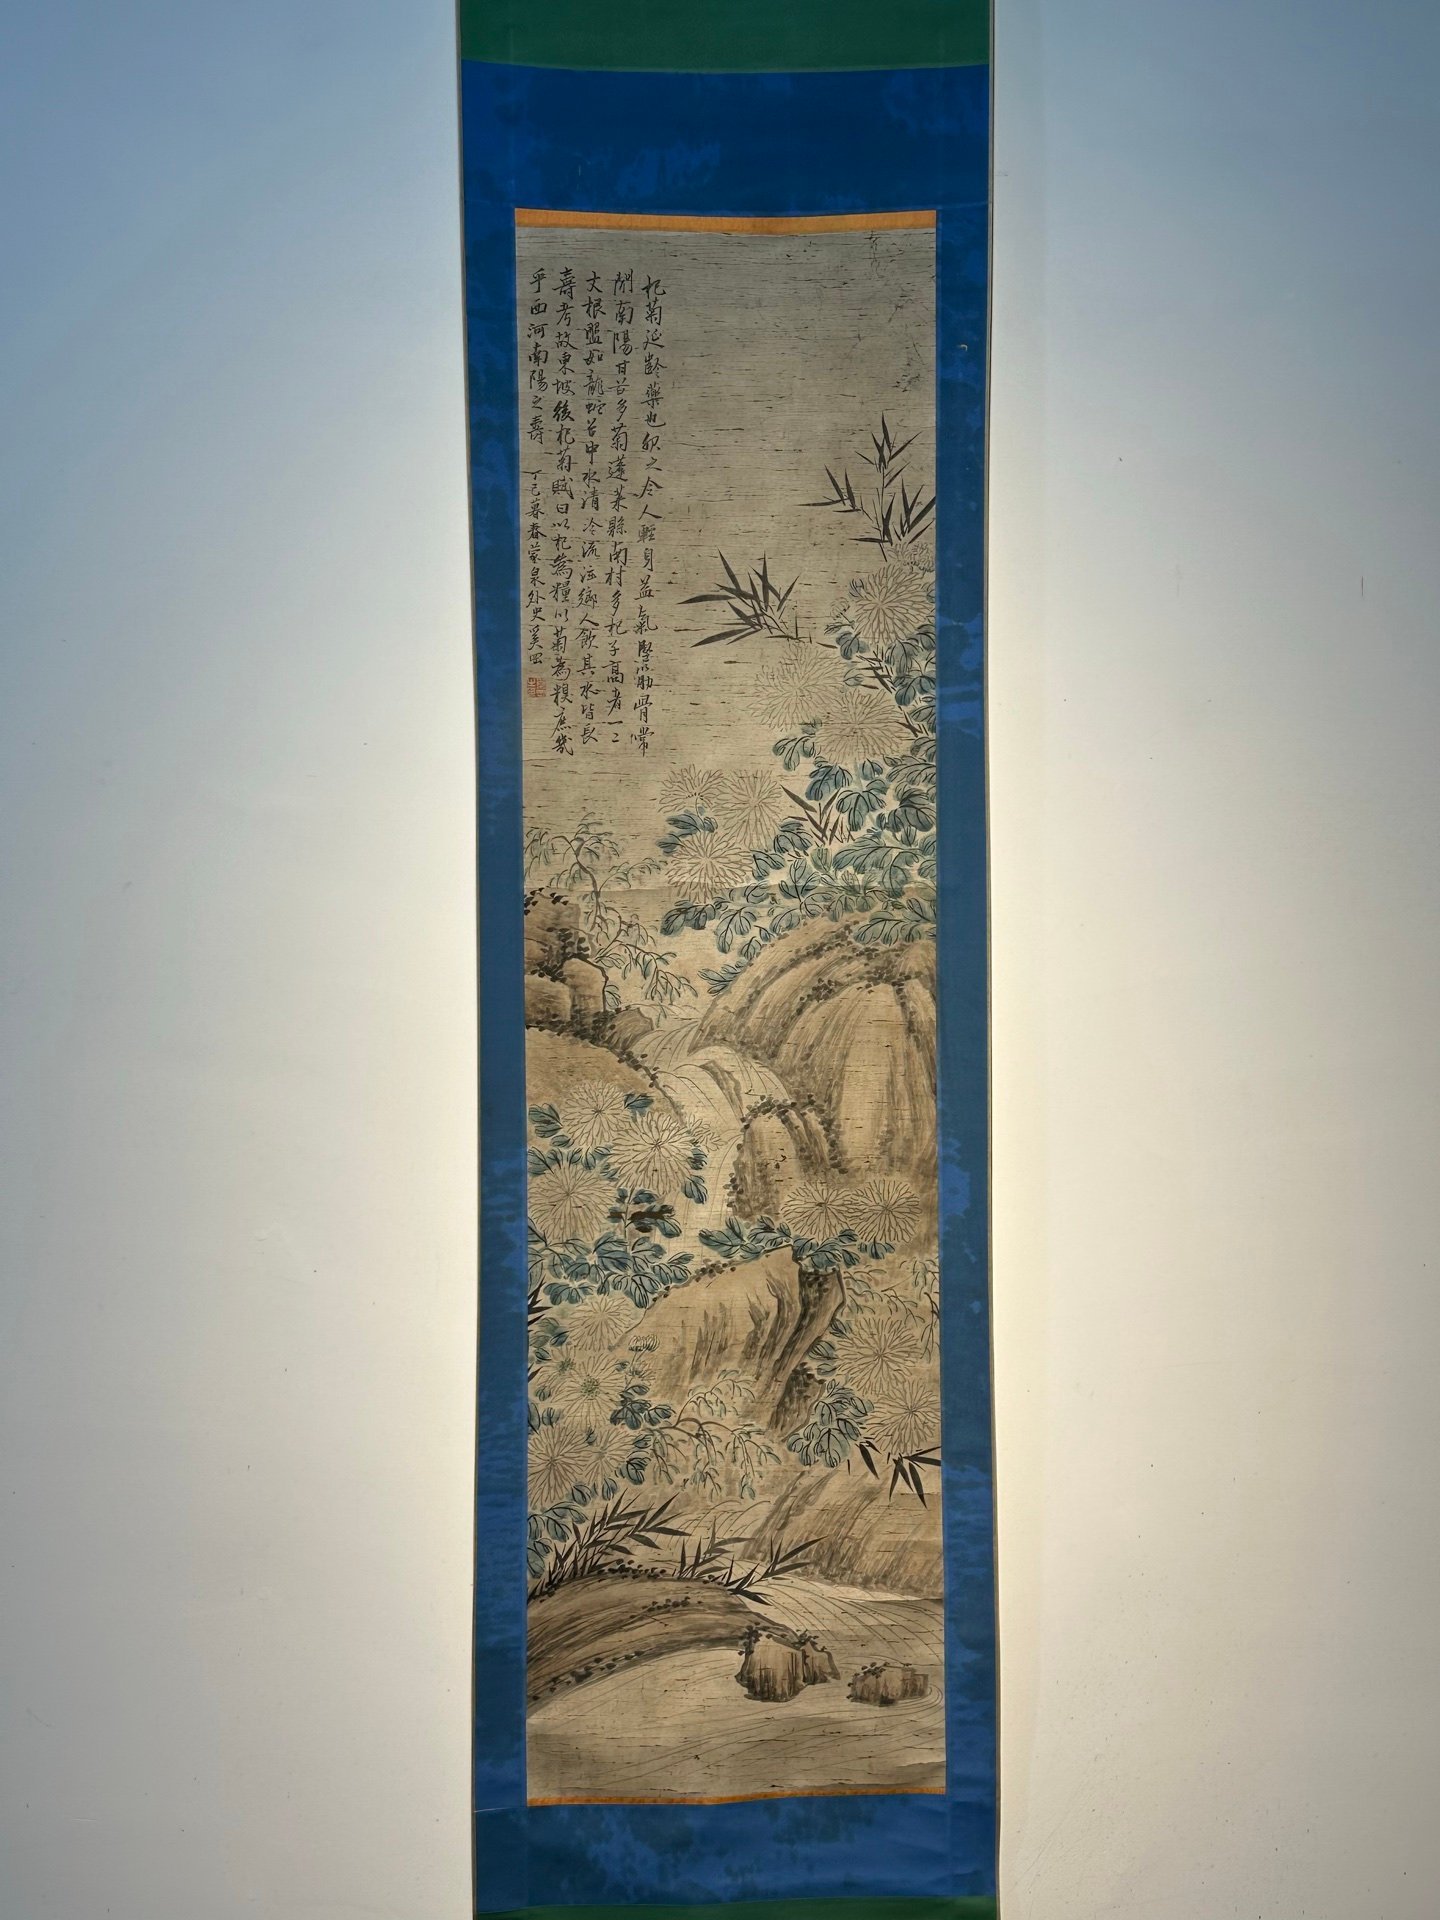 杞菊延齡藥也服之令人輕身益氣堅筋骨常
聞南陽甘谷多菊蓬萊縣南村多杞子高者一二
丈根盤如龍蛇谷中水清冷流注鄉人飲其水皆長
壽考故東坡後杞菊賦曰以杞為糧以菊為糗庶幾
乎西河南陽之壽
丁巳暮春蒙泉外史奚岡